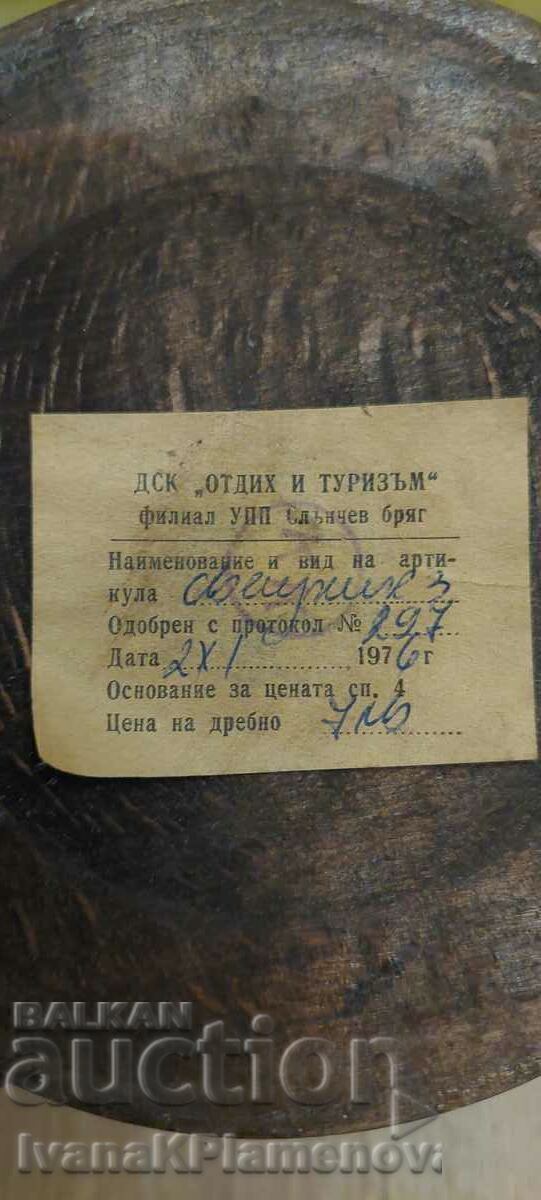 ДСК „ОТДИХ И ТУРИЗЪМ“
филиал УПП Слънчев бряг
Наименование и вид на арти-
кула Свещник 3
Одобрен с протокол № 297
Дата 2 XI 1976 г
Основание за цената сп. 4
Цена на дребно 7 лв
BALKAN
auction
IvanaKPlamenova